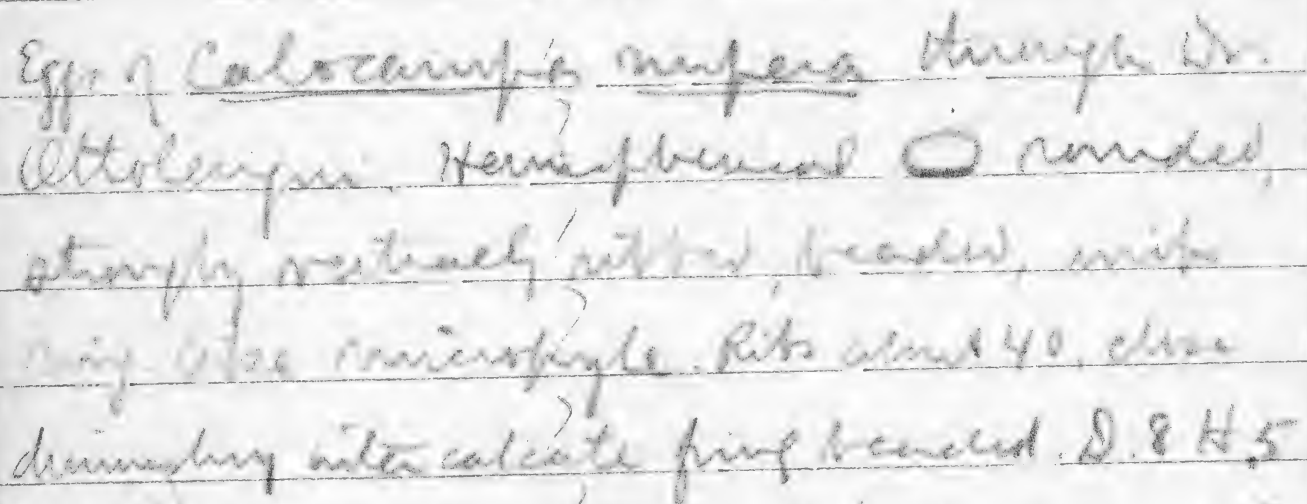 Eggs of Calocampa nupera through Dr.
Ottolengui. Hemispherical rounded,
strongly vertically ribbed, beaded, with
ring like micropyle. Ribs about 40, close
diminishing intercalate finely beaded. D .8 H .5